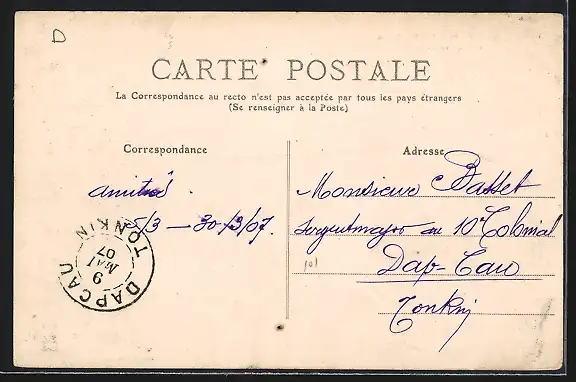 D
CARTE POSTALE
La Correspondance au recto n'est pas acceptée par tous les pays étrangers
(Se renseigner à la Poste)
Correspondance
Adresse
amitiés.
5/3 — 30/3/07.
Monsieur Basset
Sergentmajor au 10e Colonial
Dap-Cau
Tonkin
101
DAPCAU TONKIN
9
MAI
07